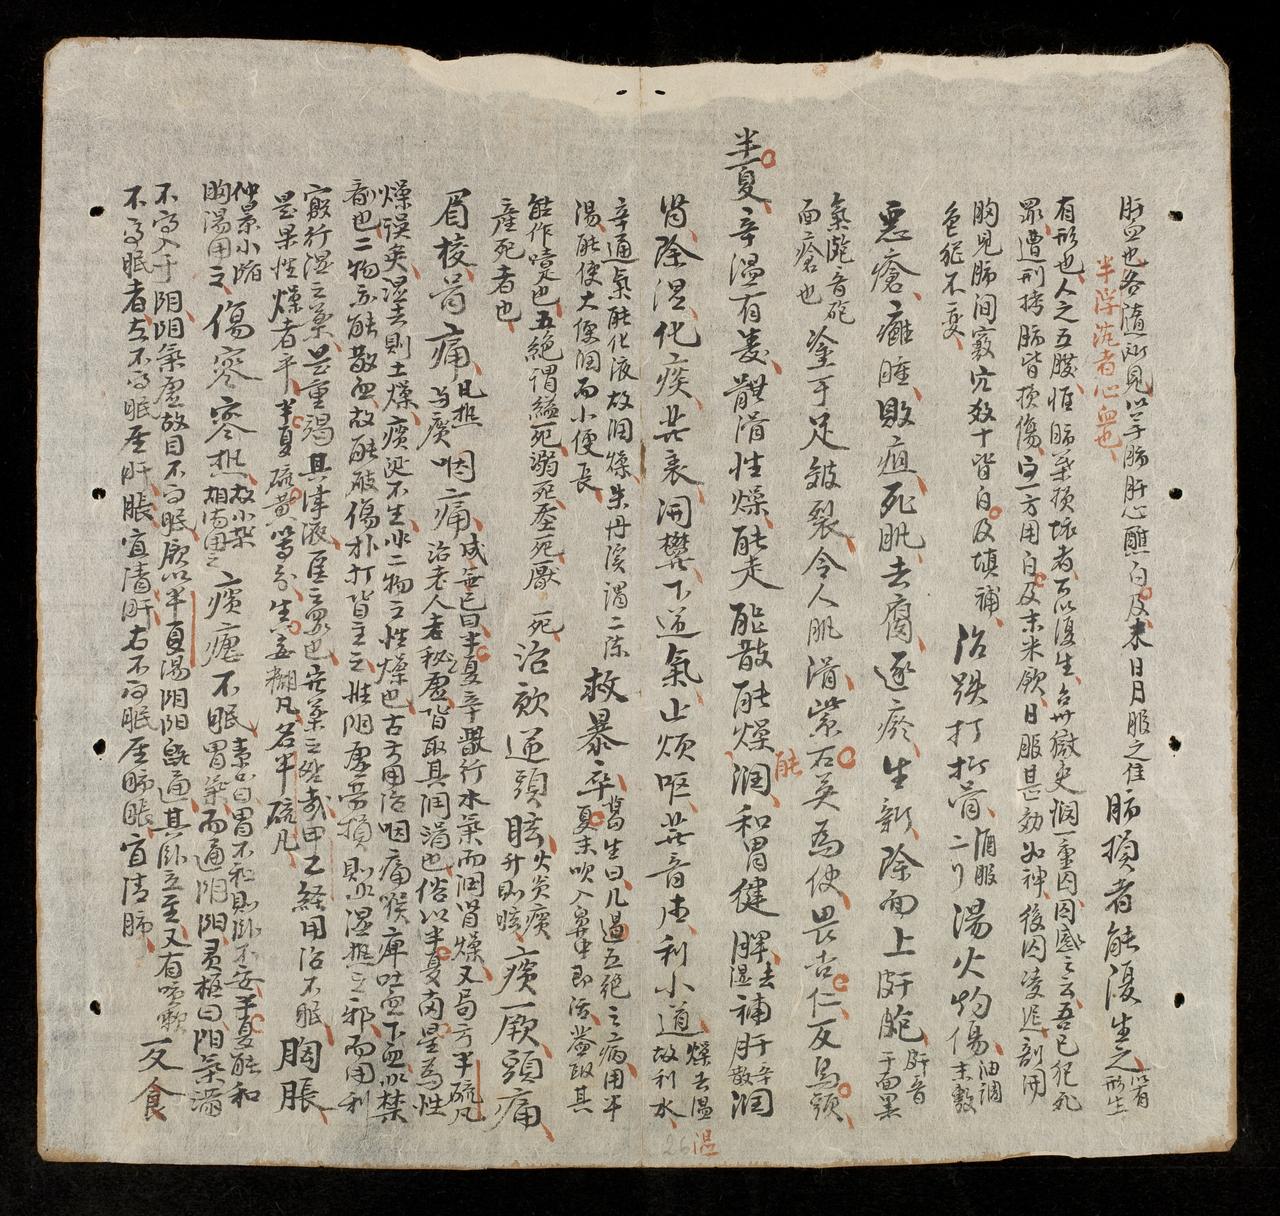 肝血也各随所見以羊肺肝心蘸白及末日日服之佳肺損者能復生之
半浮沉者心血也
有形也人之五臟惟肺葉損壞者可以復生台州獄吏憫一重囚囚感之云吾已犯死
罪遭刑拷肺皆損傷一方用白及末米飲日服其効如神後囚凌遲剖
胸見肺間竅穴數十皆白及填補治跌打折骨酒服二湯火灼傷油調末敷
色猶不變
惡瘡癰腫敗疽死肌去腐逐瘀生新除面上皯皰皯音于面黑
氣皰音砲塗手足皴裂令人肌滑紫石英為使畏杏仁反烏頭
面瘡也
半夏辛温有毒體滑性燥能走能散能燥能潤和胃健脾去湿補肝辛散潤
腎除湿化痰發表開欝下逆氣止煩呕發音声利小道燥去湿故利水
辛通氣能化液故潤燥朱丹溪謂二陳救暴卒葛生曰凡遇五絶之病用半
湯能使大便潤而小便長夏末吹入鼻中即活盖取其
能作嚏也五絶謂縊死溺死壓死厭死治欬逆頭眩火炎痰升則眩痰厥頭痛
産死者也
眉棱骨痛凡热当痰咽痛成無已曰半夏辛散行水氣而潤腎燥又局方半硫凡
治老人虚秘皆取其潤滑也俗以半夏南星為性
燥誤矣湿去則土燥痰涎不生非二物之性燥也古方用治咽痛喉痺吐血下血非禁
剤也二物亦能散血故能破傷扑打皆主之惟阴虚劳損則非湿热之邪而用利
竅行湿之藥是重竭其津液医之罪也豈藥之咎哉甲乙経用治不眠胸脹
是果性燥者乎半夏硫黄等分生姜糊凡名半硫凡
仲景小陷傷寒寒热故小柴胡湯用之痰瘧不眠素曰胃不和則卧不安半夏能和
胸湯用之胃氣而通阴阳灵枢曰阳氣满
不得入于阴阴氣虚故目不得眠飲以半夏湯阴阳既通其卧立至又有咳嗽反食
不得眠者左不得眠屬肝脹宜清肝右不得眠屬肺脹宜清肺
26
温